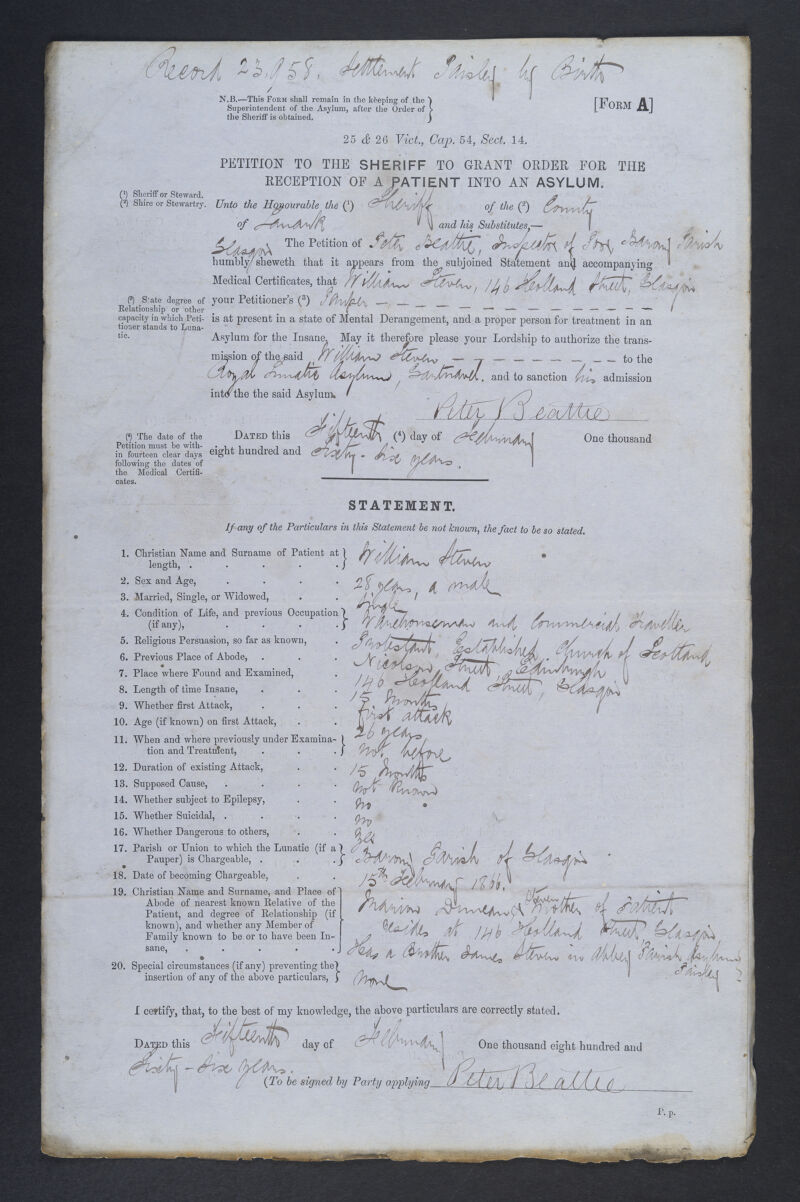 Record 23,958. Settlement Paisley by Birth
N.B.—This Form shall remain in the keeping of the
Superintendent of the Asylum, after the Order of
the Sheriff is obtained.
[Form A]
25 & 26 Vict., Cap. 54, Sect. 14.
PETITION TO THE SHERIFF TO GRANT ORDER FOR THE
RECEPTION OF A PATIENT INTO AN ASYLUM.
(¹) Sheriff or Steward.
(²) Shire or Stewartry.
Unto the Honourable the (¹) Sheriff of the (²) County
of Lanark and his Substitutes,—
The Petition of Peter Beattie, Inspector of Poor, Barony Parish
Glasgow
humbly sheweth that it appears from the subjoined Statement and accompanying
Medical Certificates, that William Steven, 146 Holland Street, Glasgow
(³) State degree of
Relationship or other
capacity in which Peti-
tioner stands to Luna-
tic.
your Petitioner's (³) Pauper — — — — — — — — — — —
is at present in a state of Mental Derangement, and a proper person for treatment in an
Asylum for the Insane, May it therefore please your Lordship to authorize the trans-
mission of the said William Steven — — — — — — — — to the
Royal Lunatic Asylum, Gartnavel. and to sanction his admission
into the the said Asylum.
Peter Beattie
(⁴) The date of the
Petition must be with-
in fourteen clear days
following the dates of
the Medical Certifi-
cates.
Dated this Fifteenth (⁴) day of February One thousand
eight hundred and Sixty-Six years.
STATEMENT.
If any of the Particulars in this Statement be not known, the fact to be so stated.
1. Christian Name and Surname of Patient at
length, . . . . . William Steven
2. Sex and Age, . . . . 28 years, a male
3. Married, Single, or Widowed, . . Single
4. Condition of Life, and previous Occupation
(if any), . . . . Warehouseman and Commercial Traveller
5. Religious Persuasion, so far as known, . Protestant, Established Church of Scotland
6. Previous Place of Abode, . . . Nicolson Street, Edinburgh
7. Place where Found and Examined, . 146 Holland Street, Glasgow
8. Length of time Insane, . . . 15 Months
9. Whether first Attack, . . . First attack
10. Age (if known) on first Attack, . . 26 years,
11. When and where previously under Examina-
tion and Treatment, . . . Not before
12. Duration of existing Attack, . . 15 Months
13. Supposed Cause, . . . . Not Known
14. Whether subject to Epilepsy, . . No
15. Whether Suicidal, . . . . No
16. Whether Dangerous to others, . . Yes
17. Parish or Union to which the Lunatic (if a
Pauper) is Chargeable, . . . Barony Parish of Glasgow
18. Date of becoming Chargeable, . . 15th February 1866.
19. Christian Name and Surname, and Place of
Abode of nearest known Relative of the
Patient, and degree of Relationship (if
known), and whether any Member of
Family known to be or to have been In-
sane, . . . . .
Marion Duncan Steven Mother of Patient
resides at 146 Holland Street, Glasgow
Has a Brother James Steven in Abbey Parish Asylum
Paisley
20. Special circumstances (if any) preventing the
insertion of any of the above particulars, None
I certify, that, to the best of my knowledge, the above particulars are correctly stated.
Dated this Fifteenth day of February One thousand eight hundred and
Sixty-Six years.
(To be signed by Party applying Peter Beattie
P. p.